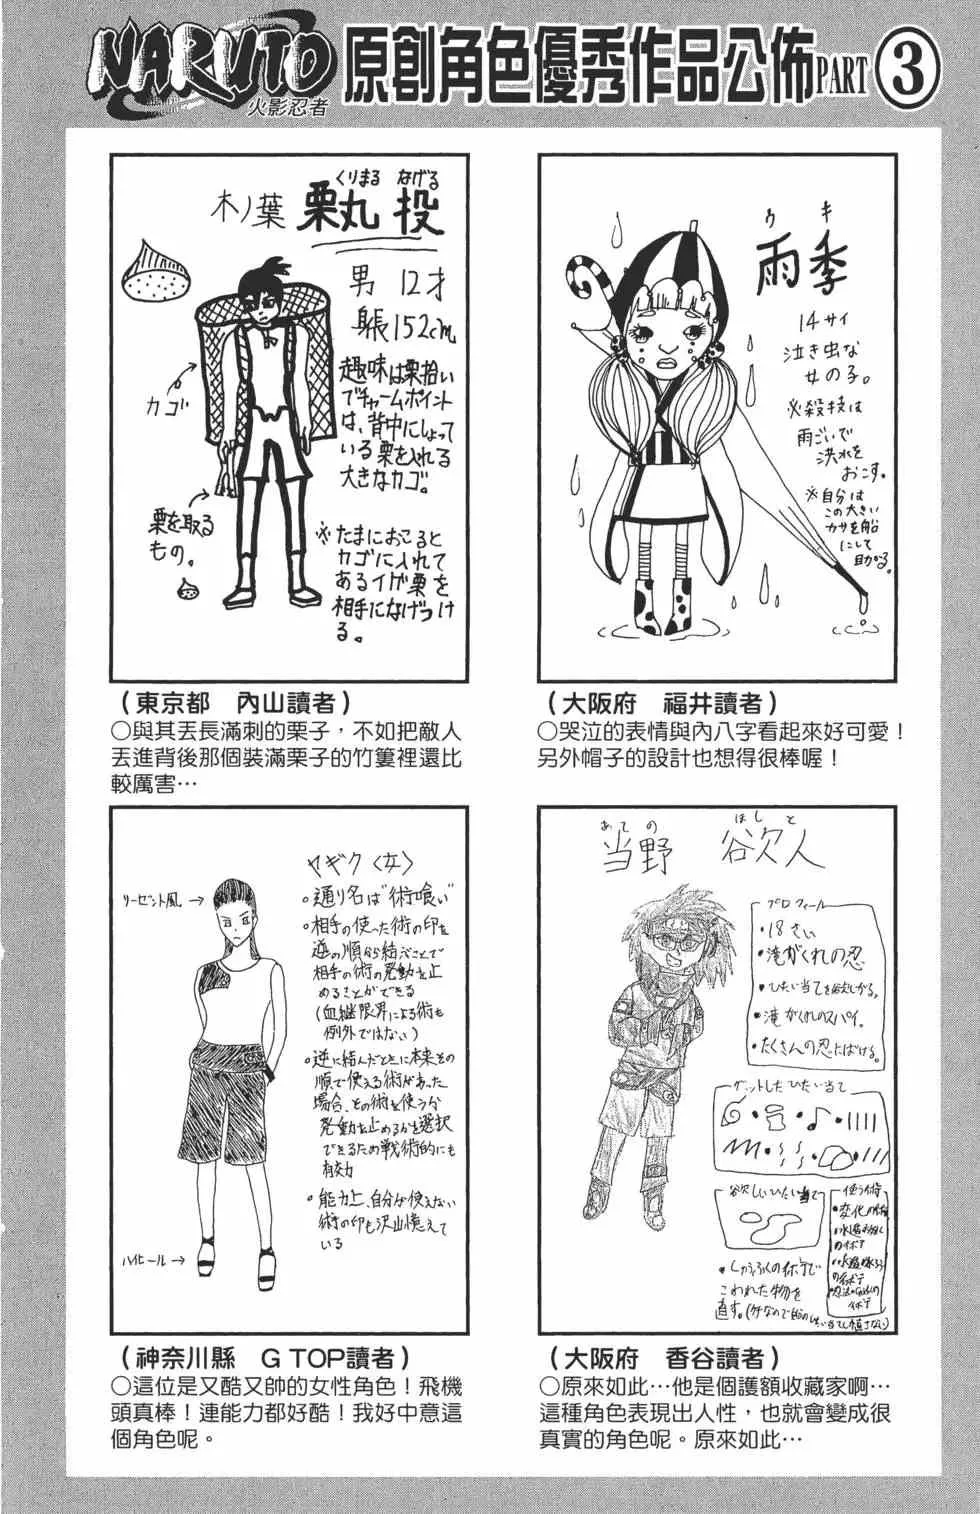 NARUTO
火影忍者
原創角色優秀作品公佈PART③
くりまる なげる
木ノ葉 栗丸 投
男 12才
身長152cm
趣味は栗拾い
でチャームポイント
は、背中にしょって
いる栗を入れる
大きなカゴ。
カゴ
栗を取る
もの。
※たまにおこると
カゴに入れて
あるイガ栗を
相手になげつけ
る。
(東京都 內山讀者)
○與其丟長滿刺的栗子，不如把敵人
丟進背後那個裝滿栗子的竹簍裡還比
較厲害…
ウキ
雨季
14サイ
泣き虫な
女の子。
必殺技は
雨ごいで
洪水を
おこす。
※自分は
この大きい
カサを船
にして
助かる。
(大阪府 福井讀者)
○哭泣的表情與內八字看起來好可愛！
另外帽子的設計也想得很棒喔！
ヤギク〈女〉
リーゼント風
○通り名は“術喰い”
○相手の使った術の印を
逆の順から結ぶことで
相手の術の発動を止
めることができる
(血継限界による術も
例外ではない)
○逆に結んだときに本来その
順で使える術があった
場合、その術を使うか
発動を止めるかを選択
できるため戦術的にも
有効
○能力上、自分が使えない
術の印も沢山憶えて
いる
ハイヒール
(神奈川縣 G TOP讀者)
○這位是又酷又帥的女性角色！飛機
頭真棒！連能力都好酷！我好中意這
個角色呢。
あての ほしと
当野 欲人
プロフィール
・18さい
・滝がくれの忍
・ひたい当てを欲しがる。
・滝がくれのスパイ。
・たくさんの忍にばける。
ゲットしたひたい当て
欲しいひたい当て
使う術
・変化の術
・しゅうふくの術で
こわれた物を
直す。
(大阪府 香谷讀者)
○原來如此…他是個護額收藏家啊…
這種角色表現出人性，也就會變成很
真實的角色呢。原來如此…